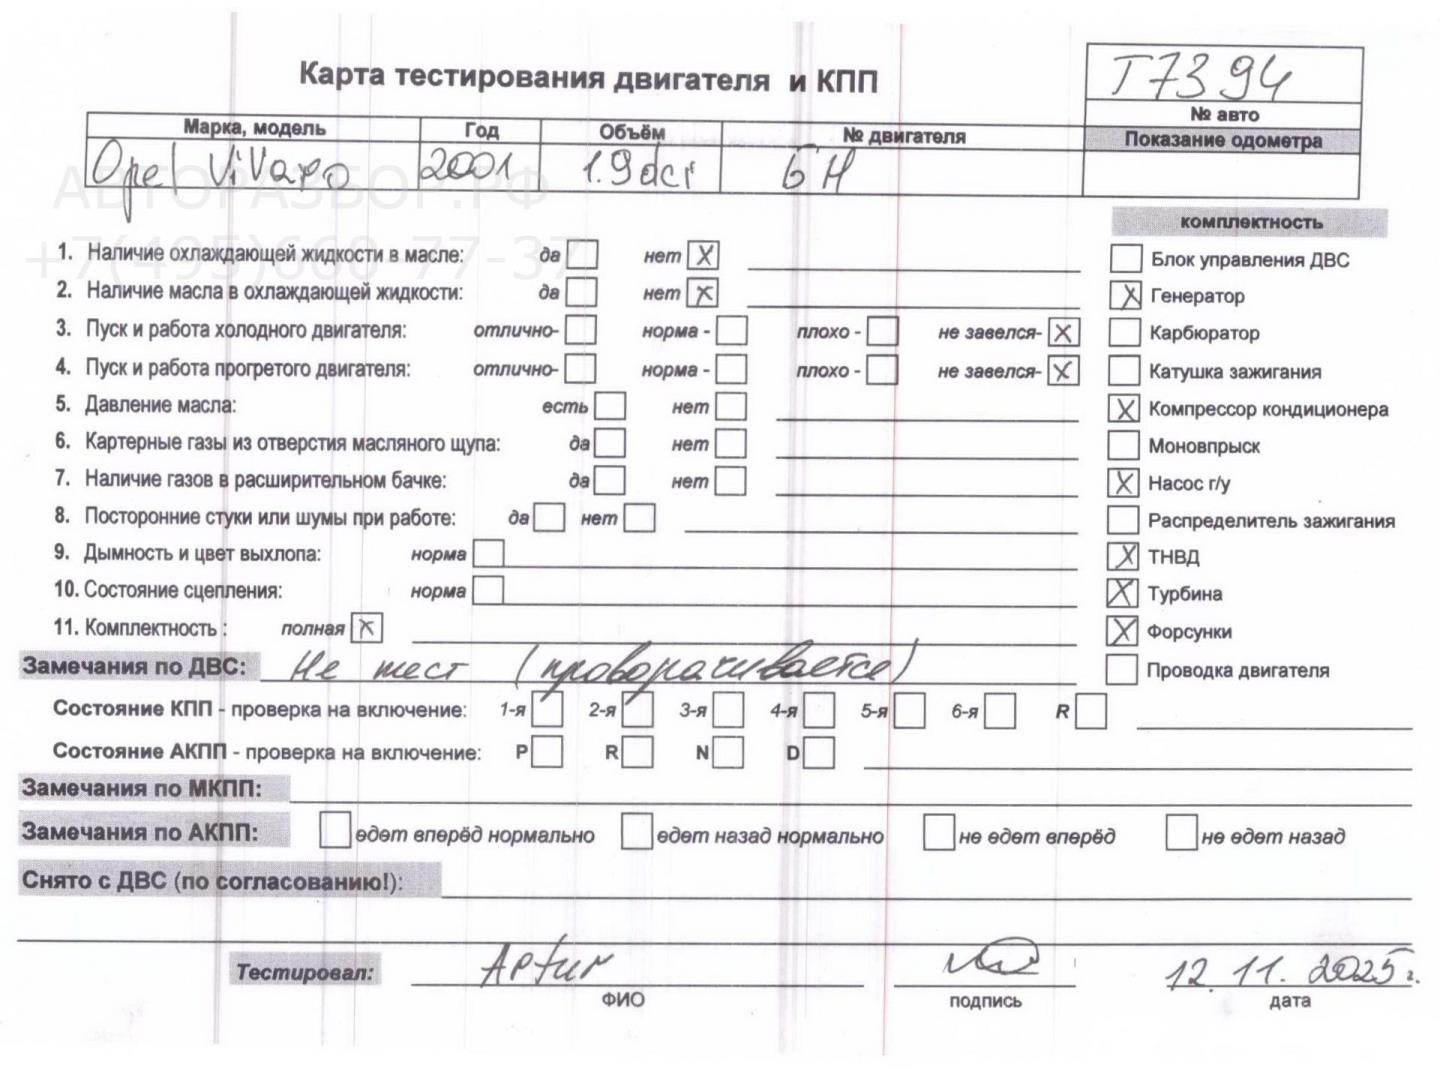 Карта тестирования двигателя и КПП
T7394
№ авто
Показание одометра
Марка, модель Год Объём № двигателя
Opel Vivaro 2001 1.9dci БН
АВТОРАЗБОР.РФ
+7(495)668-77-37
комплектность
1. Наличие охлаждающей жидкости в масле: да нет X
Блок управления ДВС
2. Наличие масла в охлаждающей жидкости: да нет X
X Генератор
3. Пуск и работа холодного двигателя: отлично- норма - плохо - не завелся- X
Карбюратор
4. Пуск и работа прогретого двигателя: отлично- норма - плохо - не завелся- X
Катушка зажигания
5. Давление масла: есть нет
X Компрессор кондиционера
6. Картерные газы из отверстия масляного щупа: да нет
Моновпрыск
7. Наличие газов в расширительном бачке: да нет
X Насос г/у
8. Посторонние стуки или шумы при работе: да нет
Распределитель зажигания
9. Дымность и цвет выхлопа: норма
X ТНВД
10. Состояние сцепления: норма
X Турбина
11. Комплектность : полная X
X Форсунки
Замечания по ДВС: Не тест (проворачивается)
Проводка двигателя
Состояние КПП - проверка на включение: 1-я 2-я 3-я 4-я 5-я 6-я R
Состояние АКПП - проверка на включение: P R N D
Замечания по МКПП:
Замечания по АКПП: едет вперёд нормально едет назад нормально не едет вперёд не едет назад
Снято с ДВС (по согласованию!):
Тестировал: Артur 12.11.2025г.
ФИО подпись дата